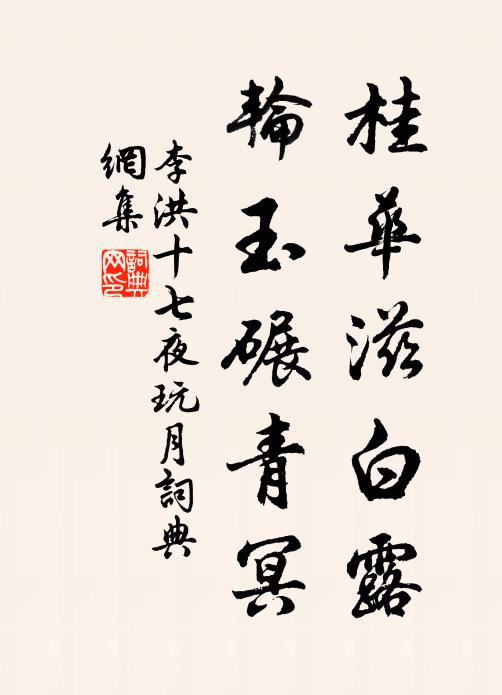 桂華滋白露
輪玉碾青冥
李洪十七夜玩月詞典
網集
詞典
网印